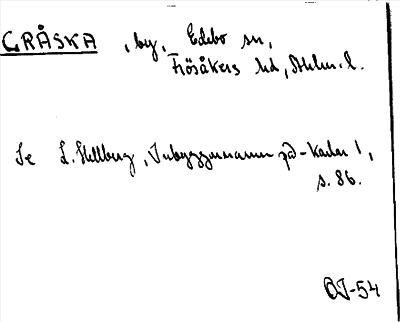 GRÅSKA , by, Edebo sn,
Frösåkers hd, Sthlm. l.
Se L. Hellberg, Inbyggarnamn på -karlar 1,
s. 86.
OJ-54